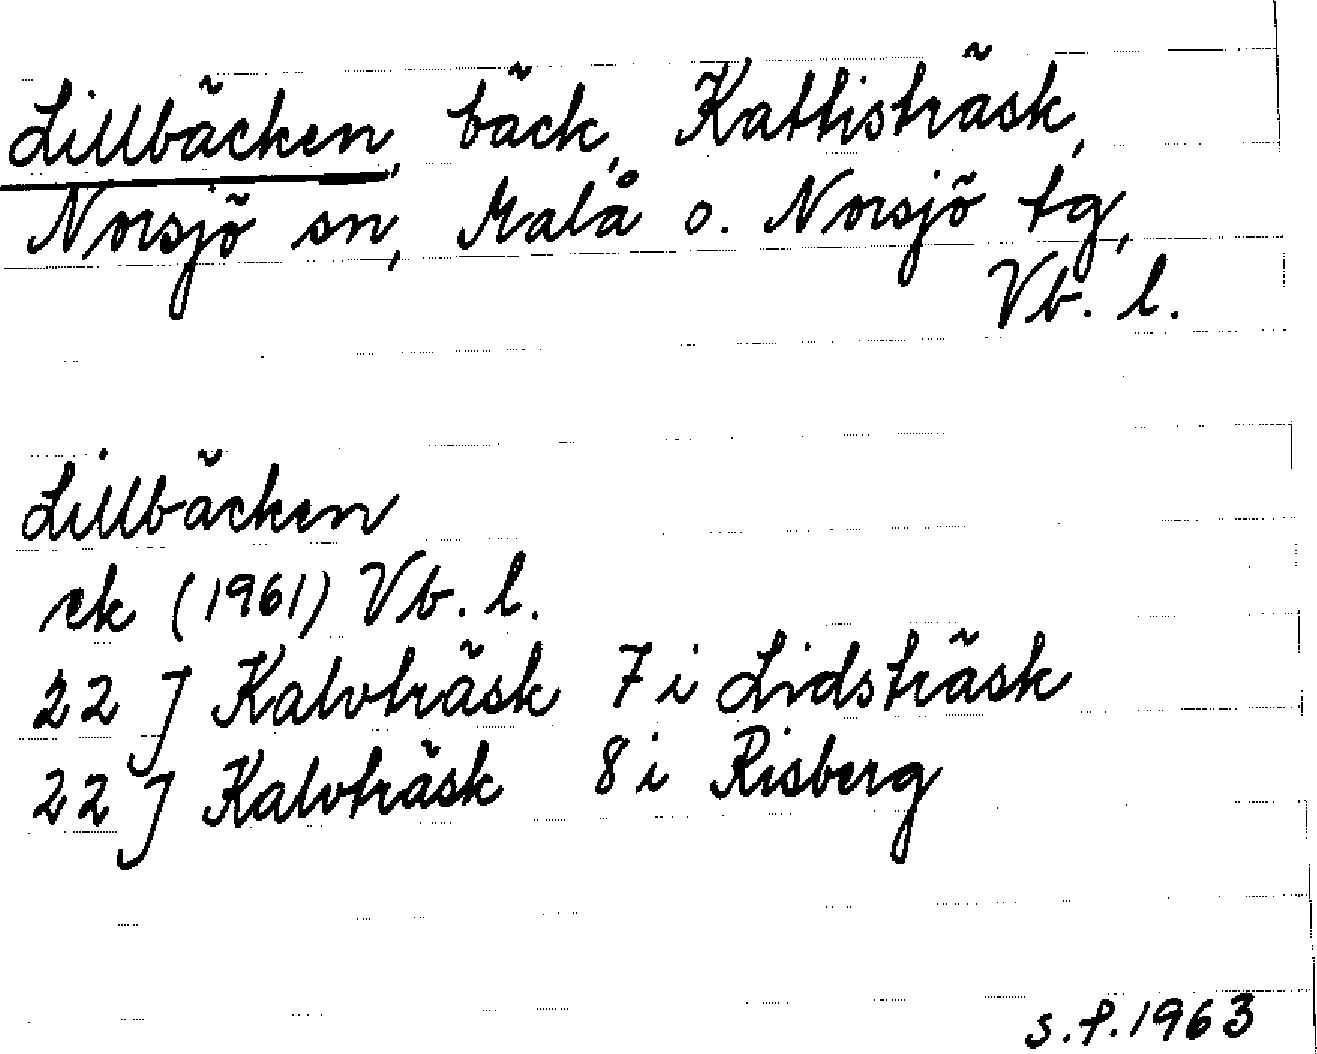 Lillbäcken, bäck, Kattisträsk,
Norsjö sn, Malå o. Norsjö tg,
Vb. l.
Lillbäcken
ek (1961) Vb. l.
22 J Kalvträsk 7 i Lidsträsk
22 J Kalvträsk 8 i Risberg
s. f. 1963